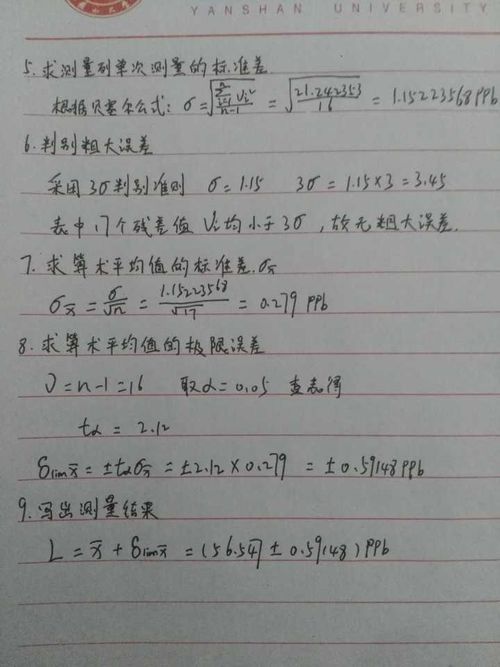 YANSHAN UNIVERSITY
5. 求测量列单次测量的标准差
根据贝塞尔公式: σ=√(Σᵢ₌₁ⁿVᵢ²/n-1) = √(21.242353/16) = 1.15223568ppb
6. 判别粗大误差
采用3σ判别准则 σ=1.15 3σ=1.15×3=3.45
表中17个残差值 Vᵢ均小于3σ,故无粗大误差.
7. 求算术平均值的标准差.σx̄
σx̄ = σ/√n = 1.15223568/√17 = 0.279 ppb
8. 求算术平均值的极限误差
ν=n-1=16 取α=0.05 查表得
tα = 2.12
δlimx̄ = ±tασx̄ = ±2.12×0.279 = ±0.59148ppb
9. 写出测量结果
L = x̄ + δlimx̄ = (56.547 ± 0.59148) ppb